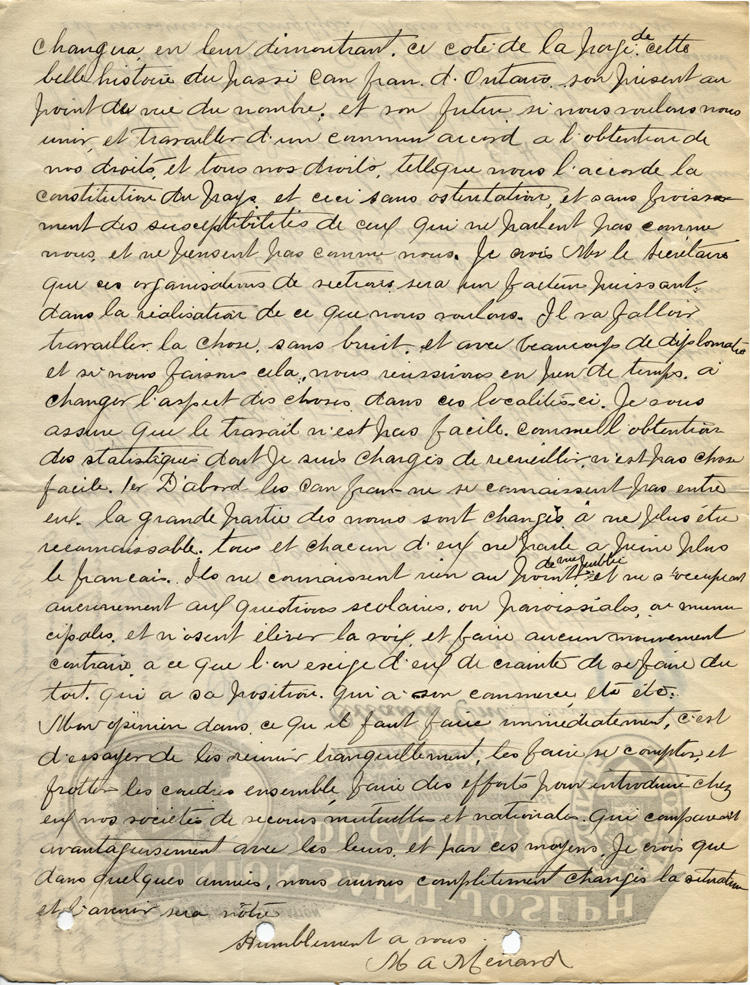 changera, en leur démontrant. ce coté de la page de cette
belle histoire du passé can fran. d. Ontario. son présent au
point de vue du nombre. et son futur si nous voulons nous
unir, et travailler d'un commun accord a l'obtention de
nos droits, et tous nos droits, telle que nous l'accorde la
constitution du pays, et ceci sans ostentation, et sans froisse-
ment des susceptibilités de ceux qui ne parlent pas comme
nous, et ne pensent pas comme nous. Je crois Mr le Secrétaire
que ces organisations de sections sera un facteur puissant
dans la réalisation de ce que nous voulons. Il va falloir
travailler la chose, sans bruit, et avec beaucoup de diplomatie
et si nous faisons cela, nous réussirons en peu de temps. a
changer l'aspect des choses dans ces localités-ci. Je vous
assure que le travail n'est pas facile. comme l'obtention
des statistiques dont Je suis chargés de recueillir, n'est pas chose
facile. 1er D'abord les can fran ne se connaissent pas entre
eux. la grande partie des noms sont changés à ne plus être
reconnaissable. tous et chacun d'eux ne parle a peine plus
le francais. Ils ne connaissent rien au point de vue public et ne s'occupent
aucunement aux questions scolaires, ou paroissiales, ou muni-
cipales. et n'osent élever la voix, et faire aucun mouvement
contraire a ce que l'on exige d'eux de crainte de se faire du
tort. qui a sa position. qui a son commerce, etc etc.
Mon opinion dans ce qu'il faut faire immédiatement, c'est
d'essayer de les réunir tranquillement, les faire se compter, et
frotter les coudes ensemble, faire des efforts pour introduire chez
eux nos sociétés de secours mutuelles et nationales. Qui comparerait
avantageusement avec les leurs, et par ces moyens, Je crois que
dans quelques années, nous aurons complètement changés la situation
et l'avenir sera nôtre
Humblement a vous
M A Ménard
UNION SAINT JOSEPH
DU CANADA